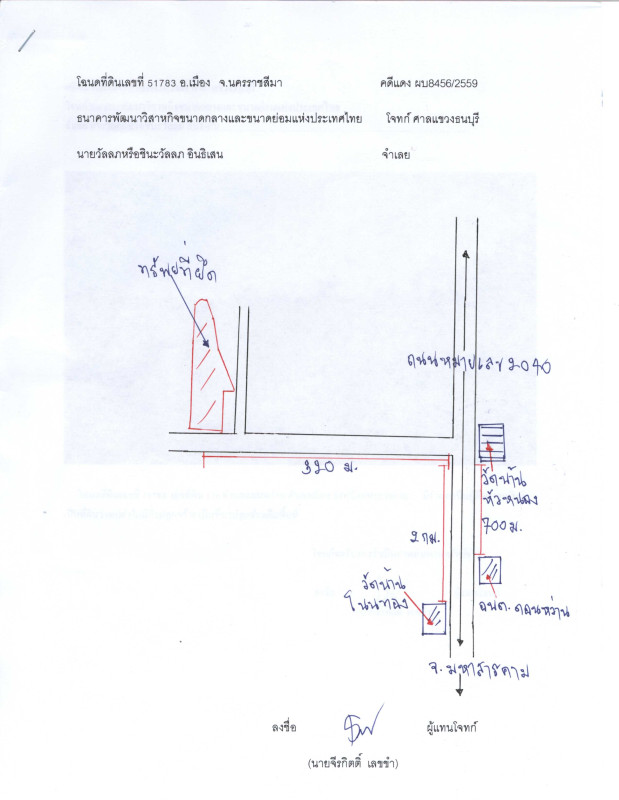 โฉนดที่ดินเลขที่ 51783 อ.เมือง จ.นครราชสีมา คดีแดง ผบ8456/2559
ธนาคารพัฒนาวิสาหกิจขนาดกลางและขนาดย่อมแห่งประเทศไทย โจทก์ ศาลแขวงธนบุรี
นายวัลลภหรือชินะวัลลภ อินธิเสน จำเลย
ทรัพย์ที่ยึด
ถนนหมายเลข 2040
320 ม.
วัดบ้าน
หัวหนอง
700 ม.
2 กม.
วัดบ้าน
โนนทอง
อบต. ดอนหว่าน
จ. มหาสารคาม
ลงชื่อ ผู้แทนโจทก์
(นายจีรกิตติ์ เลขขำ)